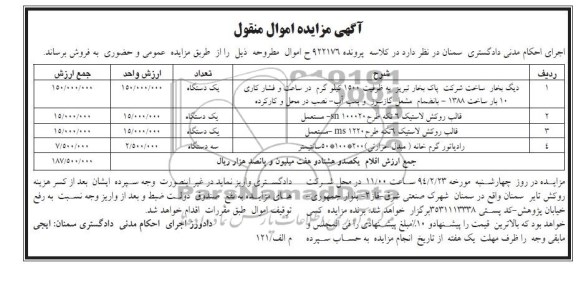 آگهی مزایده اموال منقول
اجرای احکام مدنی دادگستری سمنان در نظر دارد در کلاسه پرونده ۹۲۲۱۷۶ ح اموال مطروحه ذیل را از طریق مزایده عمومی و حضوری به فروش برساند.
ردیف شرح تعداد ارزش واحد جمع ارزش
۱ دیگ بخار ساخت شرکت پاک بخار تبریز به ظرفیت ۱۵۰۰ کیلو گرم در ساعت و فشار کاری ۱۰ بار ساخت ۱۳۸۸ - بانضمام مشعل گازسوز و پمپ آب- نصب در محل و کارکرده یک دستگاه ۱۵۰/۰۰۰/۰۰۰ ۱۵۰/۰۰۰/۰۰۰
۲ قالب روکش لاستیک ۶ تکه طرح ۱۰۰۰۲۰ sn- مستعمل یک دستگاه ۱۵/۰۰۰/۰۰۰ ۱۵/۰۰۰/۰۰۰
۳ قالب روکش لاستیک ۶ تکه طرح ۱۲۲۰ ms -مستعمل یک دستگاه ۱۵/۰۰۰/۰۰۰ ۱۵/۰۰۰/۰۰۰
۴ رادیاتور گرم خانه ( مبدل حرارتی) ۲۰۰*۱۰۰*۵۰سانتیمتر سه دستگاه ۲/۵۰۰/۰۰۰ ۷/۵۰۰/۰۰۰
جمع ارزش اقلام یکصدو هشتادو هفت میلیون و پانصد هزار ریال ۱۸۷/۵۰۰/۰۰۰
مزایده در روز چهارشنبه مورخه ۹۴/۲/۲۳ ساعت ۱۱/۰۰ در محل شرکت
روکش تایر سمنان واقع در سمنان شهرک صنعتی شرق- فاز ۲- بلوار جمهوری-
خیابان پژوهش-کد پستی ۳۵۳۱۱۱۳۳۳۸ برگزار خواهد شد. برنده مزایده کسی
خواهد بود که بالاترین قیمت را پیشنهاد و ۱۰٪ مبلغ پیشنهادی را فی المجلس و
مابقی وجه را ظرف مهلت یک هفته از تاریخ انجام مزایده به حساب سپرده
دادگستری واریز نماید در غیر اینصورت وجه سپرده ایشان بعد از کسر هزینه
های مزایده به نفع صندوق دولت ضبط و بعد از واریز وجه نسبت به رفع
توقیف اموال طبق مقررات اقدام خواهد شد.
دادورز اجرای احکام مدنی دادگستری سمنان: ایجی
م الف/۱۲۱